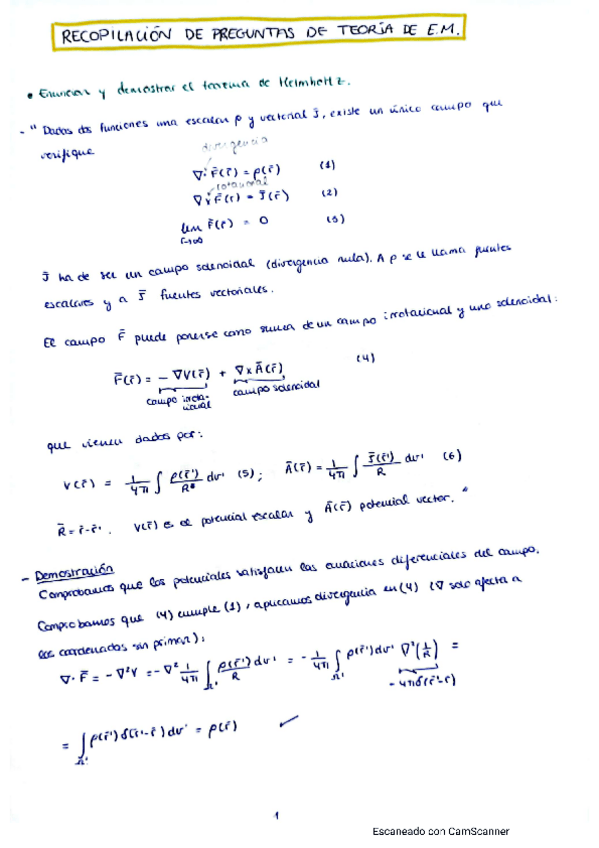 RECOPILACIÓN DE PREGUNTAS DE TEORÍA DE E.M.
• Enunciar y demostrar el teorema de Helmholtz.
- "Dadas dos funciones una escalar ρ y vectorial J̄, existe un único campo que
verifique
divergencia
∇·F̄(r̄) = ρ(r̄) (1)
rotacional
∇×F̄(r̄) = J̄(r̄) (2)
lim F̄(r̄) = 0 (3)
r→∞
J̄ ha de ser un campo solenoidal (divergencia nula). A ρ se le llama fuentes
escalares y a J̄ fuentes vectoriales.
El campo F̄ puede ponerse como suma de un campo irrotacional y uno solenoidal:
F̄(r̄) = - ∇V(r̄) + ∇×Ā(r̄) (4)
campo irrota-
cional
campo solenoidal
que vienen dados por:
V(r̄) = 1/4π ∫ ρ(r̄')/R dv' (5); Ā(r̄) = 1/4π ∫ J̄(r̄')/R dv' (6)
R̄ = r̄-r̄'. V(r̄) es el potencial escalar y Ā(r̄) potencial vector."
- Demostración
Comprobamos que los potenciales satisfacen las ecuaciones diferenciales del campo.
Comprobamos que (4) cumple (1), aplicamos divergencia en (4) (∇ solo afecta a
las coordenadas sin primar):
∇·F̄ = -∇²V = -∇² 1/4π ∫Ω' ρ(r̄')dv'/R = - 1/4π ∫Ω' ρ(r̄')dv' ∇²(1/R) =
-4πδ(r̄'-r̄)
= ∫Ω' ρ(r̄')δ(r̄'-r̄)dv' = ρ(r̄) ✓
1
Escaneado con CamScanner